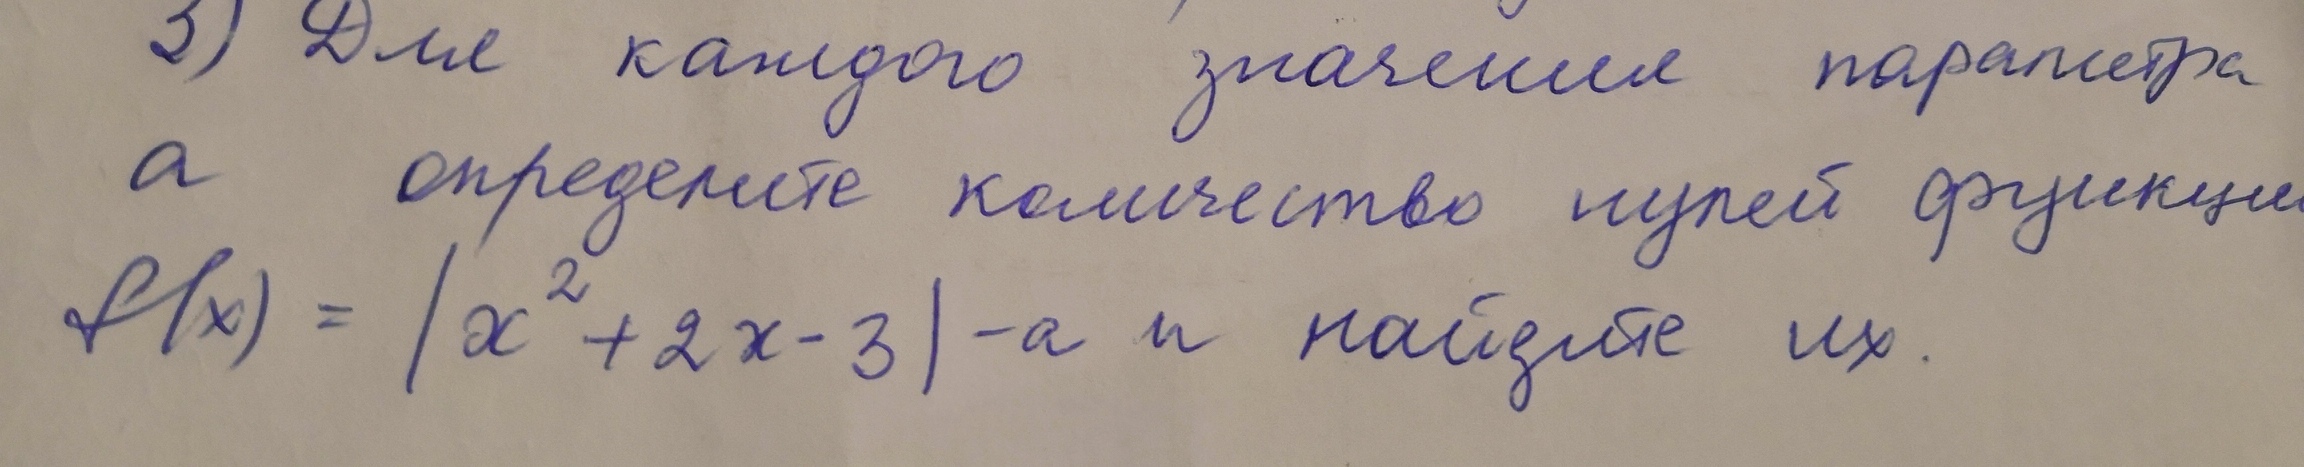 3) Для каждого значения параметра
а определите количество нулей функции
f(x) = |x² + 2x - 3| - a и найдите их.